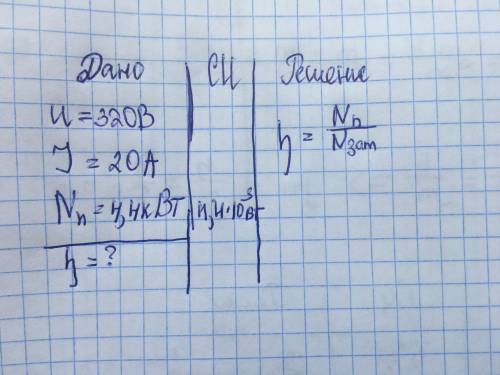 Дано
U = 320В
I = 20А
Nп = 4,4кВт
η = ?
СИ
4,4·10³Вт
Решение
η = Nп / Nзат